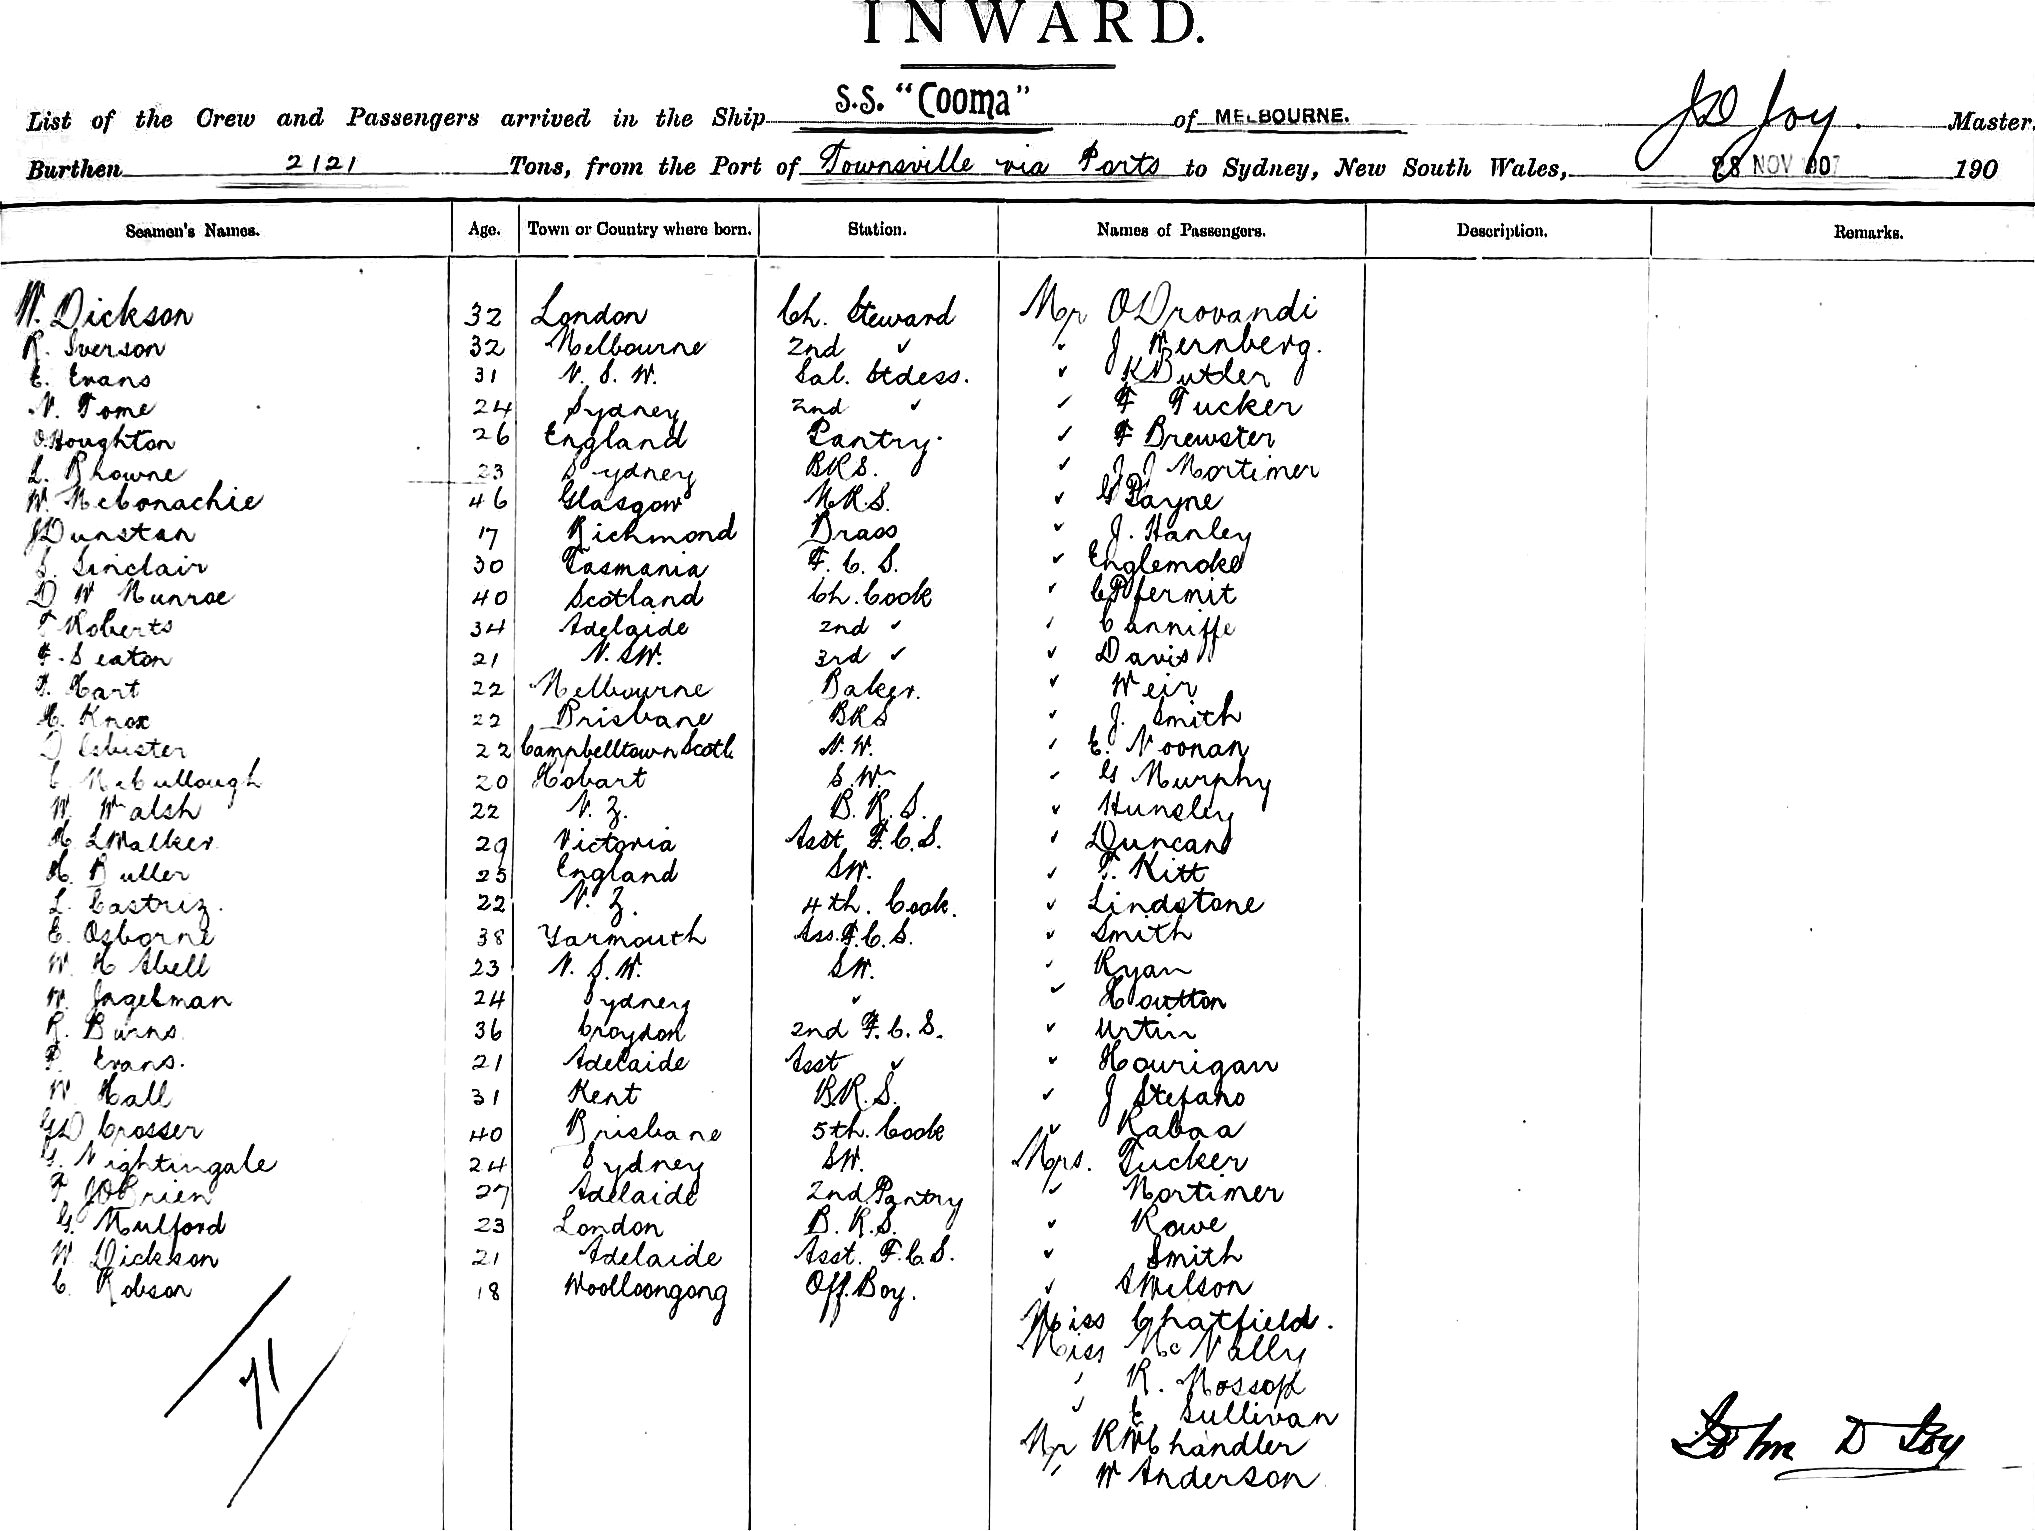 INWARD.
List of the Crew and Passengers arrived in the Ship S.S. "Cooma" of MELBOURNE. J D Joy. Master,
Burthen 2121 Tons, from the Port of Townsville via Ports to Sydney, New South Wales, 28 NOV 1907 190
Seamen's Names. Age. Town or Country where born. Station. Names of Passengers. Description. Remarks.
W. Dickson 32 London Ch. Steward Mr O Drovandi
R. Iverson 32 Melbourne 2nd " " J Wernberg.
E. Evans 31 N. S. W. Sal. Stdess. " K Butler
N. Tome 24 Sydney 2nd " " F Tucker
O. Houghton 26 England Pantry. " F Brewster
L. Bhowne 23 Sydney BRS. " J J Mortimer
W. McConachie 46 Glasgow M.R.S. " G Payne
J Dunstan 17 Richmond Brass " J. Hanley
S. Sinclair 30 Tasmania F. C. S. " Englemoke
D W Munroe 40 Scotland Ch. Cook " C Pfermit
T Roberts 34 Adelaide 2nd " " Canniffe
F. Seaton 21 N. SW. 3rd " " Davis
F. Hart 22 Melbourne Baker. " Weir
H. Knox 22 Brisbane BRS " J. Smith
D Isbister 22 Campbelltown Scotl N.W. " E. Noonan
C McCullough 20 Hobart S.W. " G Murphy
W. Walsh 22 N. Z. B. R. S. " Hunsley
H. L Walker 29 Victoria Asst F.C.S. " Duncan
H. Buller 25 England SW. " T. Kitt
L. Castriz. 22 N. Z. 4th. Cook. " Lindstone
E. Osborne 38 Yarmouth Ass. F.C.S. " Smith
W. H Abell 23 N. S. W. SW. " Ryan
W. Jagelman 24 Sydney " " Houtton
R. Burns. 36 Croydon 2nd F.C.S. " Urtin
P. Evans. 21 Adelaide Asst " " Hourigan
W. Hall 31 Kent B.R.S. " J Stefano
G D Crosser 40 Brisbane 5th. Cook " Rabaa
G. Nightingale 24 Sydney SW. Mrs. Tucker
F J OBrien 27 Adelaide 2nd Pantry " Mortimer
G. Mulford 23 London B. R.S. " Rowe
W. Dickson 21 Adelaide Asst. F.C.S. " Smith
C. Robson 18 Woolloongong Off. Boy. " S Wilson
Miss Chatfield.
Miss McNally
" R. Mossop
71 " E Sullivan
Mr R W Chandler
" W Anderson
John D Joy